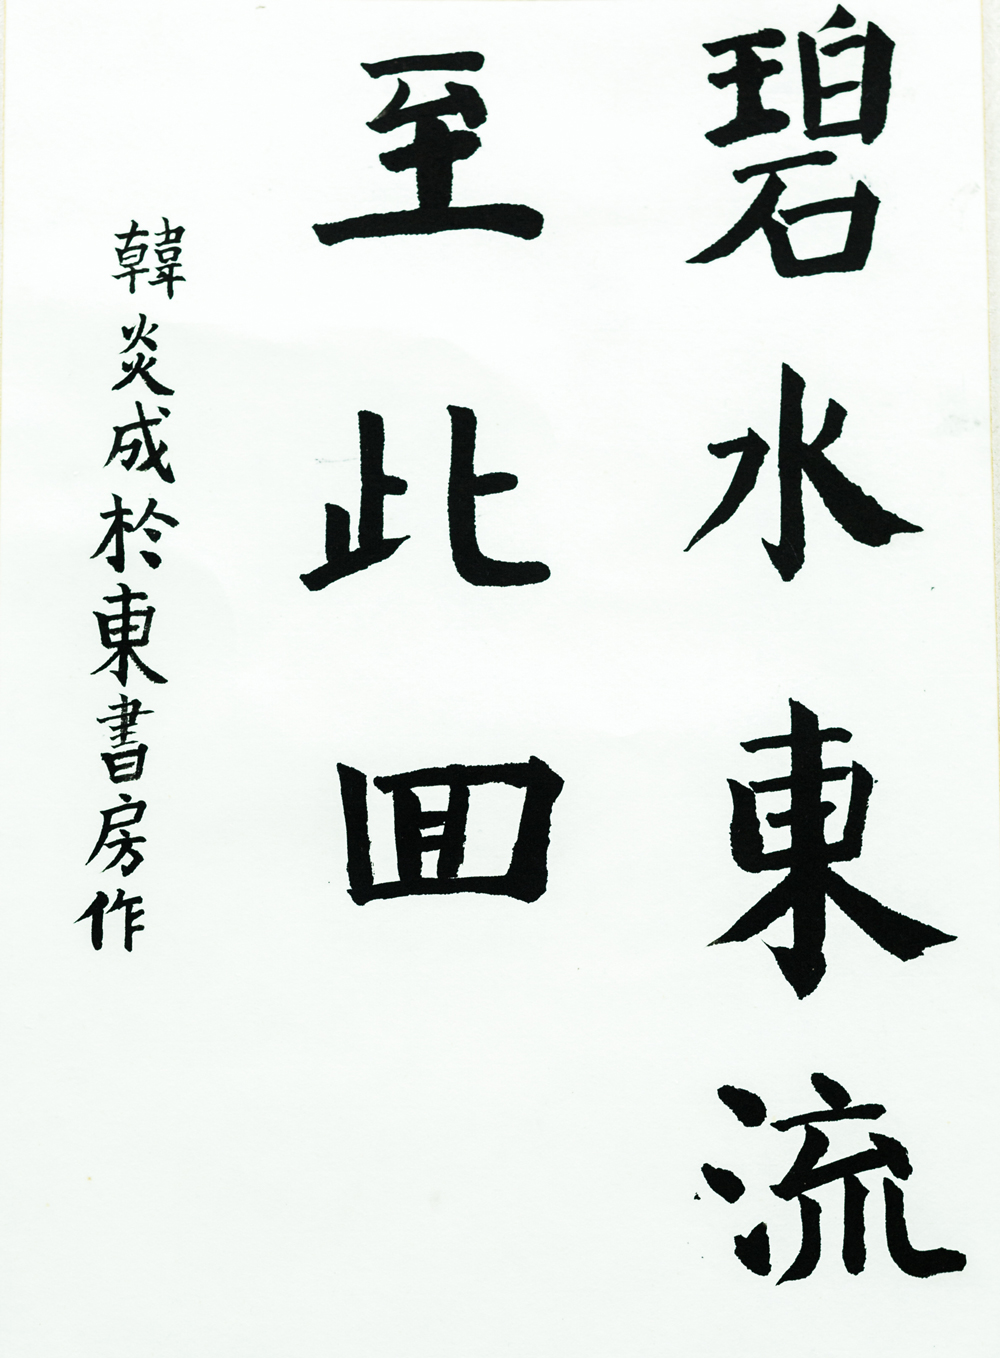 碧水東流
至此回
韓炎成於東書房作